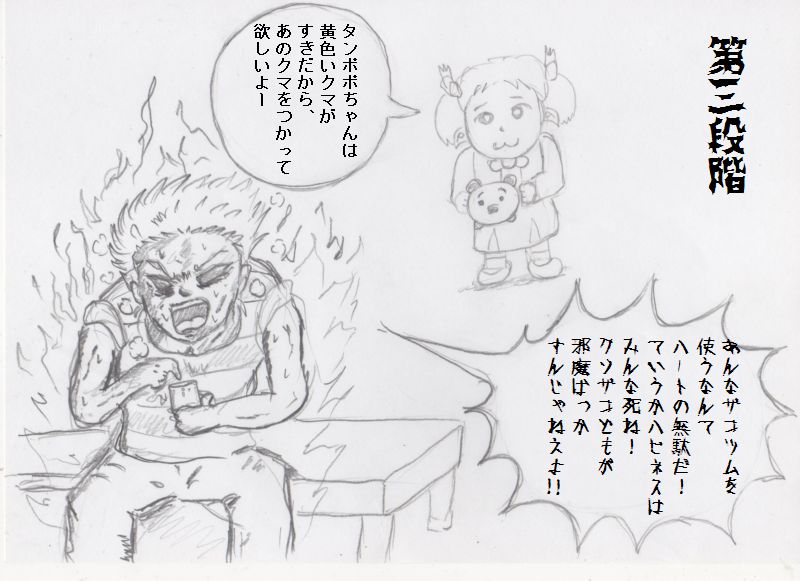 第三段階
タンポポちゃんは
黄色いクマが
すきだから、
あのクマをつかって
欲しいよー
あんなザコツムを
使うなんて
ハートの無駄だ!
ていうかハピネスは
みんな死ね!
クソザコどもが
邪魔ばっか
すんじゃねえよ!!